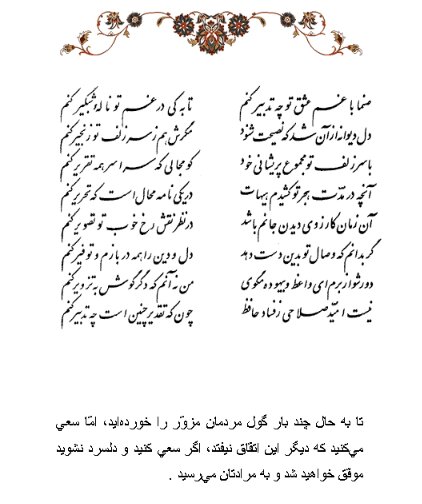 صنما با غم عشق تو چه تدبیر کنم تا به کی در غم تو ناله شبگیر کنم
دل دیوانه از آن شد که نصیحت شنود مگرش هم ز سر زلف تو زنجیر کنم
با سر زلف تو مجموع پریشانی خود کو مجالی که سراسر همه تقریر کنم
آنچه در مدت هجر تو کشیدم هیهات در یکی نامه محال است که تحریر کنم
آن زمان کارزوی دیدن جانم باشد در نظر نقش رخ خوب تو تصویر کنم
گر بدانم که وصال تو بدین دست دهد دل و دین را همه در بازم و توفیر کنم
دور شو از برم ای واعظ و بیهوده مگوی من نه آنم که دگر گوش به تزویر کنم
نیست امید صلاحی ز فساد حافظ چون که تقدیر چنین است چه تدبیر کنم
تا به حال چند بار گول مردمان مزوّر را خورده‌اید، امّا سعی
می‌کنید که دیگر این اتقاق نیفتد، اگر سعی کنید و دلسرد نشوید
موفق خواهید شد و به مرادتان می‌رسید .